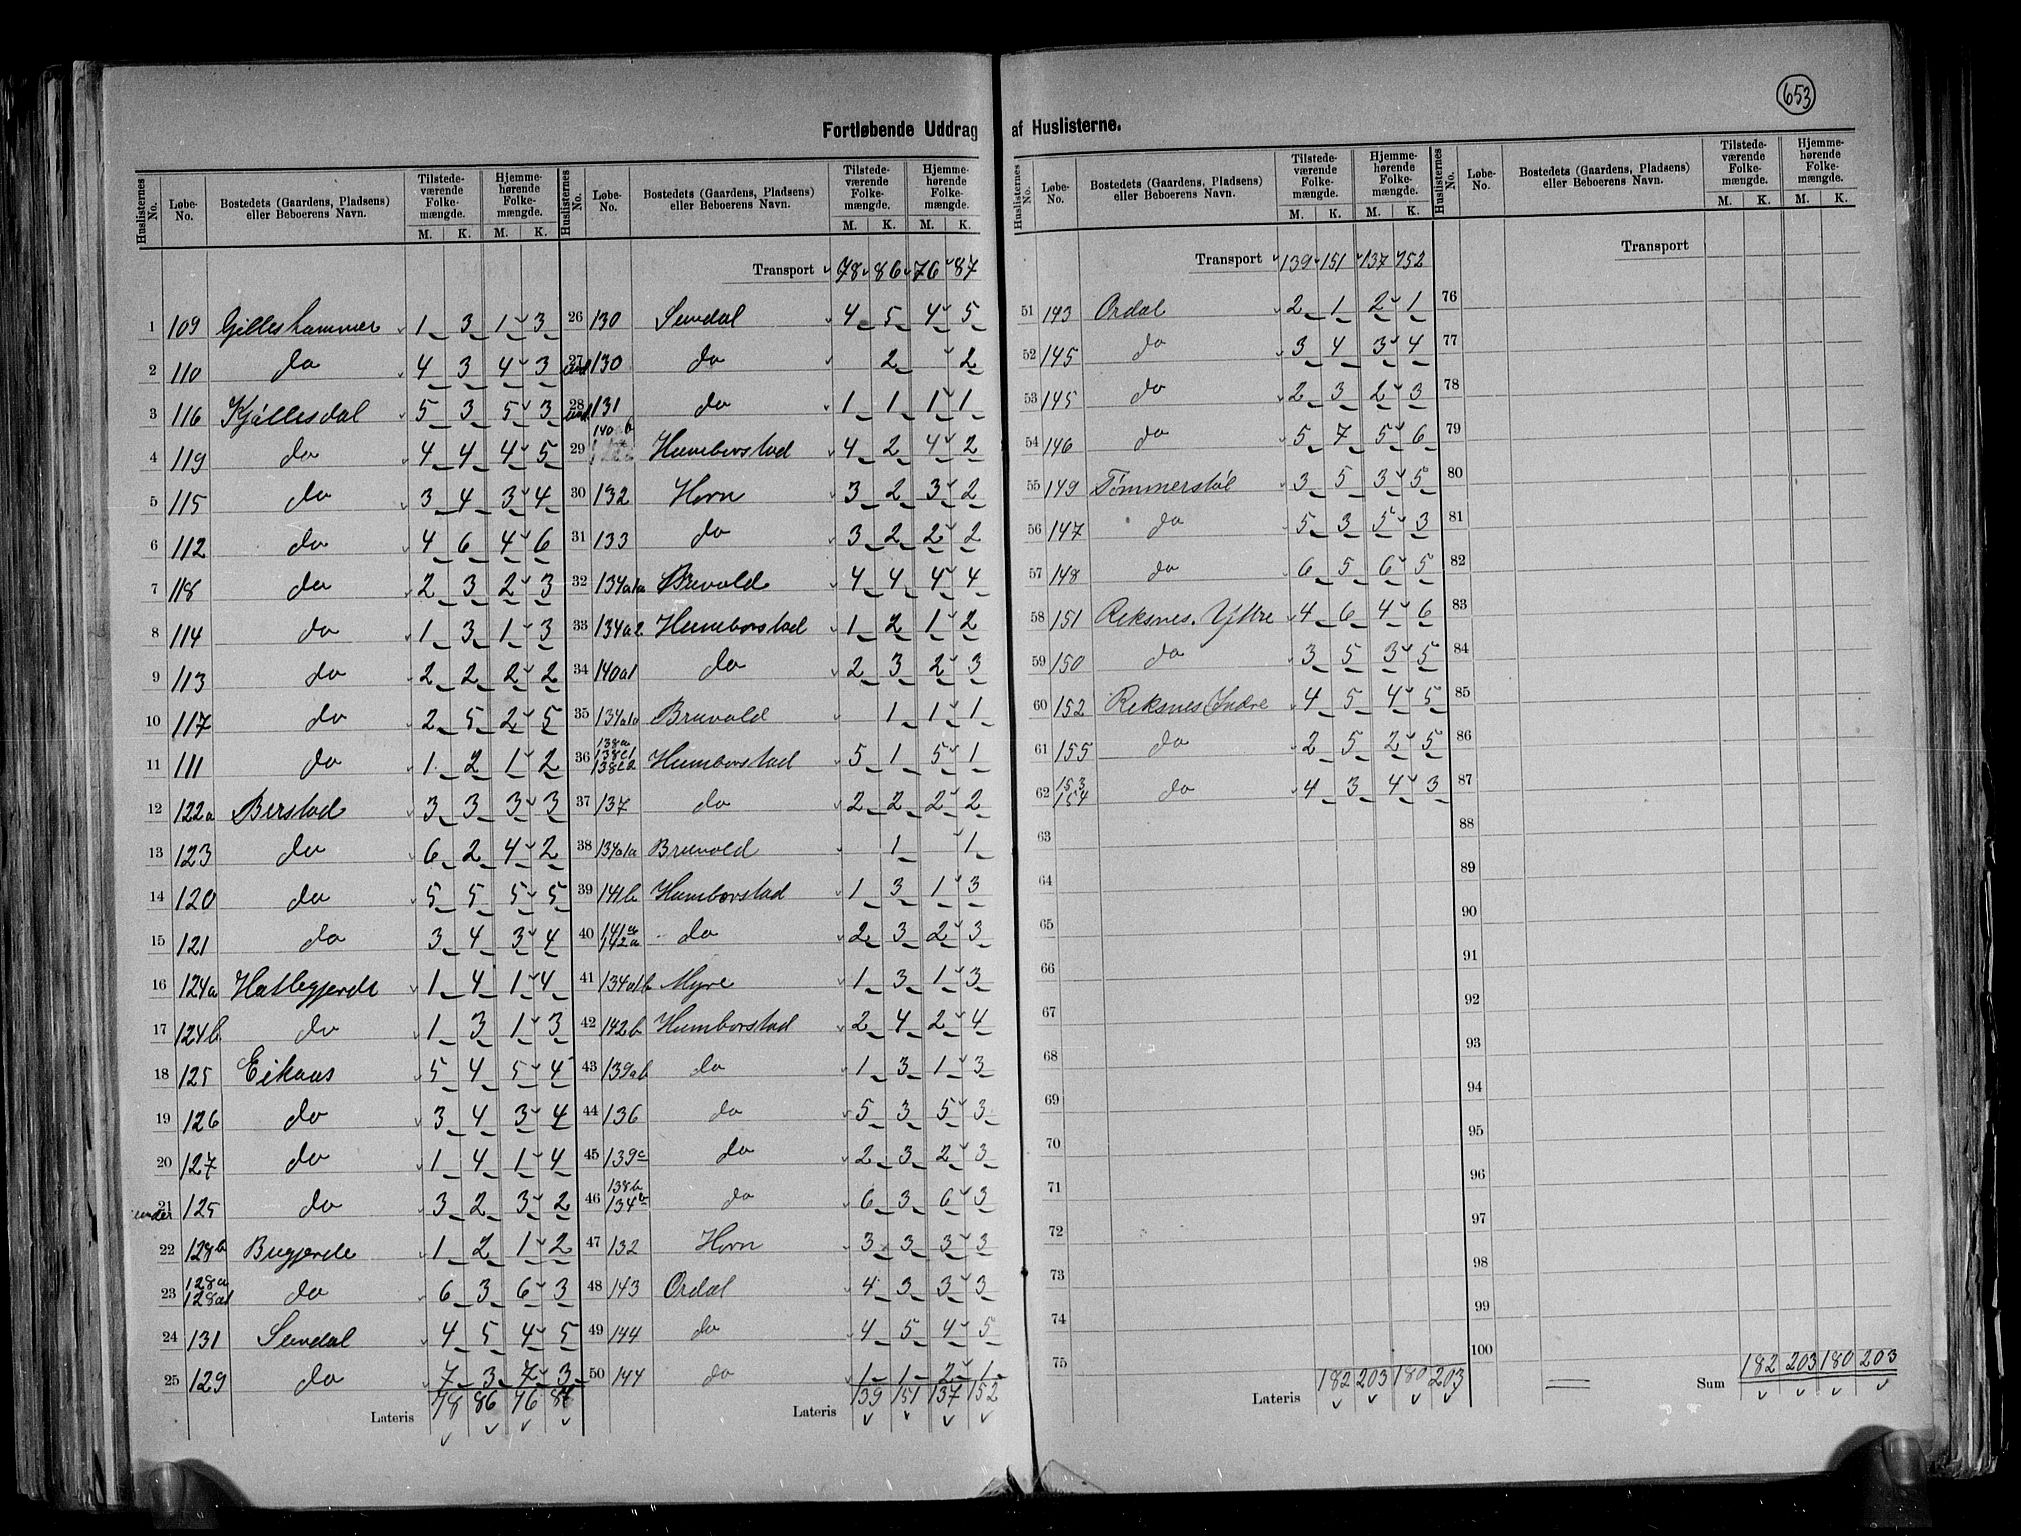 653
Fortløbende Uddrag af Huslisterne.
Huslisternes No. Løbe-No. Bostedets (Gaardens, Pladsens) eller Beboerens Navn. Tilstedeværende Folkemængde. M. K. Hjemmehørende Folkemængde. M. K.
1 109 Gilleshammer 1 3 1 3
2 110 do 4 3 4 3
3 116 Kjøllesdal 5 3 5 3
4 119 do 4 4 4 5
5 115 do 3 4 3 4
6 112 do 4 6 4 6
7 118 do 2 3 2 3
8 114 do 1 3 1 3
9 113 do 2 2 2 2
10 117 do 2 5 2 5
11 111 do 1 2 1 2
12 122a Berstad 3 3 3 3
13 123 do 6 2 4 2
14 120 do 5 5 5 5
15 121 do 3 4 3 4
16 124a Hatlegjerde 1 4 1 4
17 124b do 1 3 1 3
18 125 Eikaas 5 4 5 4
19 126 do 3 4 3 4
20 127 do 1 4 1 4
21 under 125 do 3 2 3 2
22 128b Bugjerde 1 2 1 2
23 128a 128a1 do 6 3 6 3
24 131 Sundal 4 5 4 5
25 129 do 7 3 7 3
Lateris 78 86 76 87
Huslisternes No. Løbe-No. Bostedets (Gaardens, Pladsens) eller Beboerens Navn. Tilstedeværende Folkemængde. M. K. Hjemmehørende Folkemængde. M. K.
Transport 78 86 76 87
26 130 Sundal 4 5 4 5
27 und 130 do 2 2
28 und 131 do 1 1 1 1
29 140ab Humborstad 4 2 4 2
30 132 Horn 3 2 3 2
31 133 do 3 2 2 2
32 134a1a Bruvold 4 4 4 4
33 134a2 Humborstad 1 2 1 2
34 140a1 do 2 3 2 3
35 134a1a Bruvold 1 1 1
36 138a 138c1 138c2 Humborstad 5 1 5 1
37 137 do 2 2 2 2
38 134a1a Bruvold 1 1
39 141b Humborstad 1 3 1 3
40 141a 142a do 2 3 2 3
41 134a1b Myre 1 3 1 3
42 142b Humborstad 2 4 2 4
43 139ab do 1 3 1 3
44 136 do 5 3 5 3
45 139c do 2 3 2 3
46 138b 134b do 6 3 6 3
47 132 Horn 3 3 3 3
48 143 Ordal 4 3 3 3
49 144 do 4 5 4 5
50 144 do 1 1 2 1
Lateris 139 151 137 152
Huslisternes No. Løbe-No. Bostedets (Gaardens, Pladsens) eller Beboerens Navn. Tilstedeværende Folkemængde. M. K. Hjemmehørende Folkemængde. M. K.
Transport 139 151 137 152
51 143 Ordal 2 1 2 1
52 145 do 3 4 3 4
53 145 do 2 3 2 3
54 146 do 5 7 5 6
55 149 Tømmerstøl 3 5 3 5
56 147 do 5 3 5 3
57 148 do 6 5 6 5
58 151 Reksnes. Yttre 4 6 4 6
59 150 do 3 5 3 5
60 152 Reksnes Indre 4 5 4 5
61 155 do 2 5 2 5
62 153 154 do 4 3 4 3
63
64
65
66
67
68
69
70
71
72
73
74
75
Lateris 182 203 180 203
Huslisternes No. Løbe-No. Bostedets (Gaardens, Pladsens) eller Beboerens Navn. Tilstedeværende Folkemængde. M. K. Hjemmehørende Folkemængde. M. K.
Transport
76
77
78
79
80
81
82
83
84
85
86
87
88
89
90
91
92
93
94
95
96
97
98
99
100
Sum 182 203 180 203